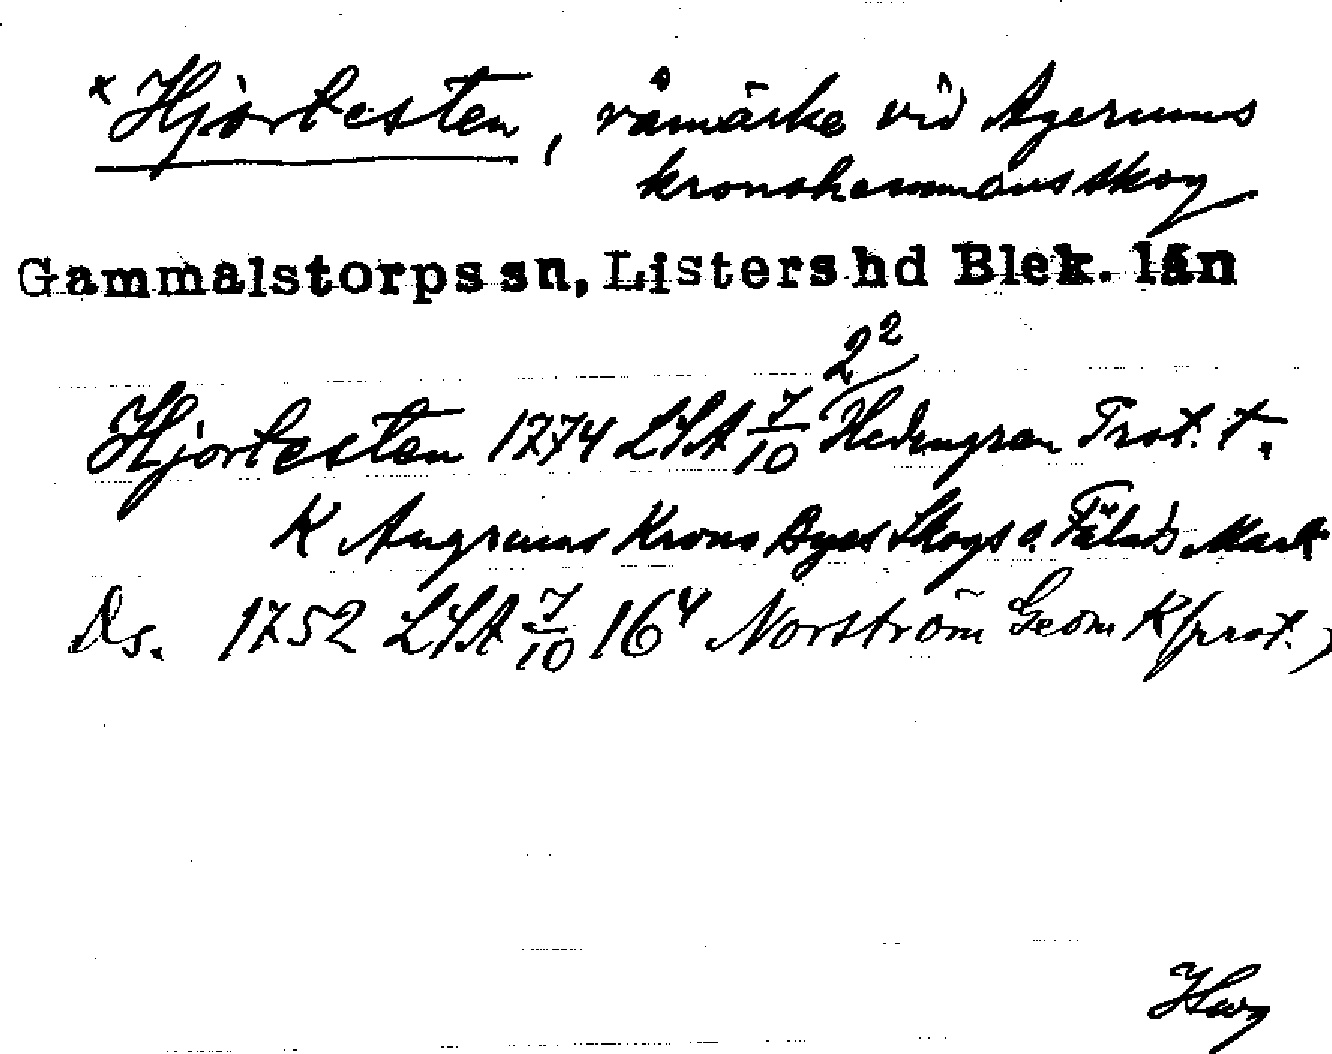 x Hjortesten, råmärke vid Agerums
kronohemmans skog
Gammalstorps sn, Listers hd Blek. län
2²
Hjortesten 1774 LSA 7/10 Hedengran Prot. t.
K Augrums Krono Byes Skogs o. Fälads Mark
Ds. 1752 LSA 7/10 16⁴ Norström Geom K (prot.)